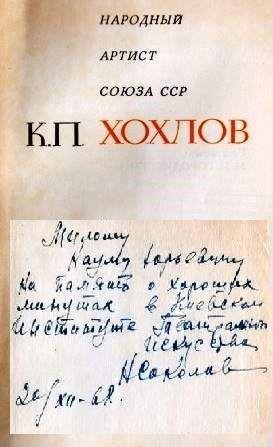 НАРОДНЫЙ
АРТИСТ
СОЮЗА ССР
К.П. ХОХЛОВ
Милому
Науму Юрьевичу
На память о хороших
минутах в Киевском
Институте Театральн
Искусства
НСоколов
20/XII-68.